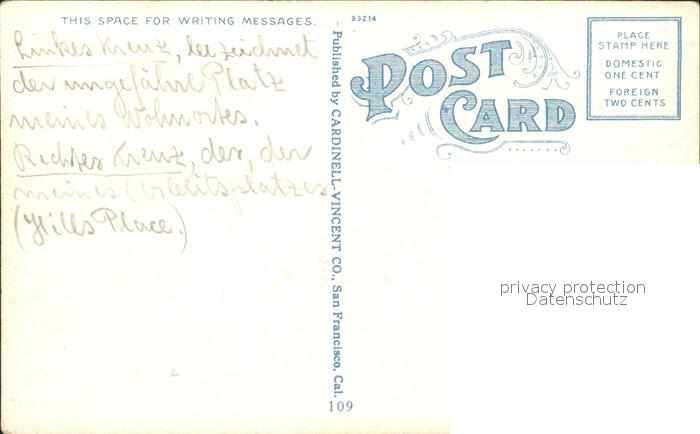 THIS SPACE FOR WRITING MESSAGES.
Linkes Kreuz, bezeichnet
der ungefähre Platz
meines Wohnortes.
Rechtes Kreuz, der, der
meines Arbeitsplatzes
(Hills Place.)
Published by CARDINELL-VINCENT CO., San Francisco, Cal.
109
93214
POST
CARD
PLACE
STAMP HERE
DOMESTIC
ONE CENT
FOREIGN
TWO CENTS
privacy protection
Datenschutz